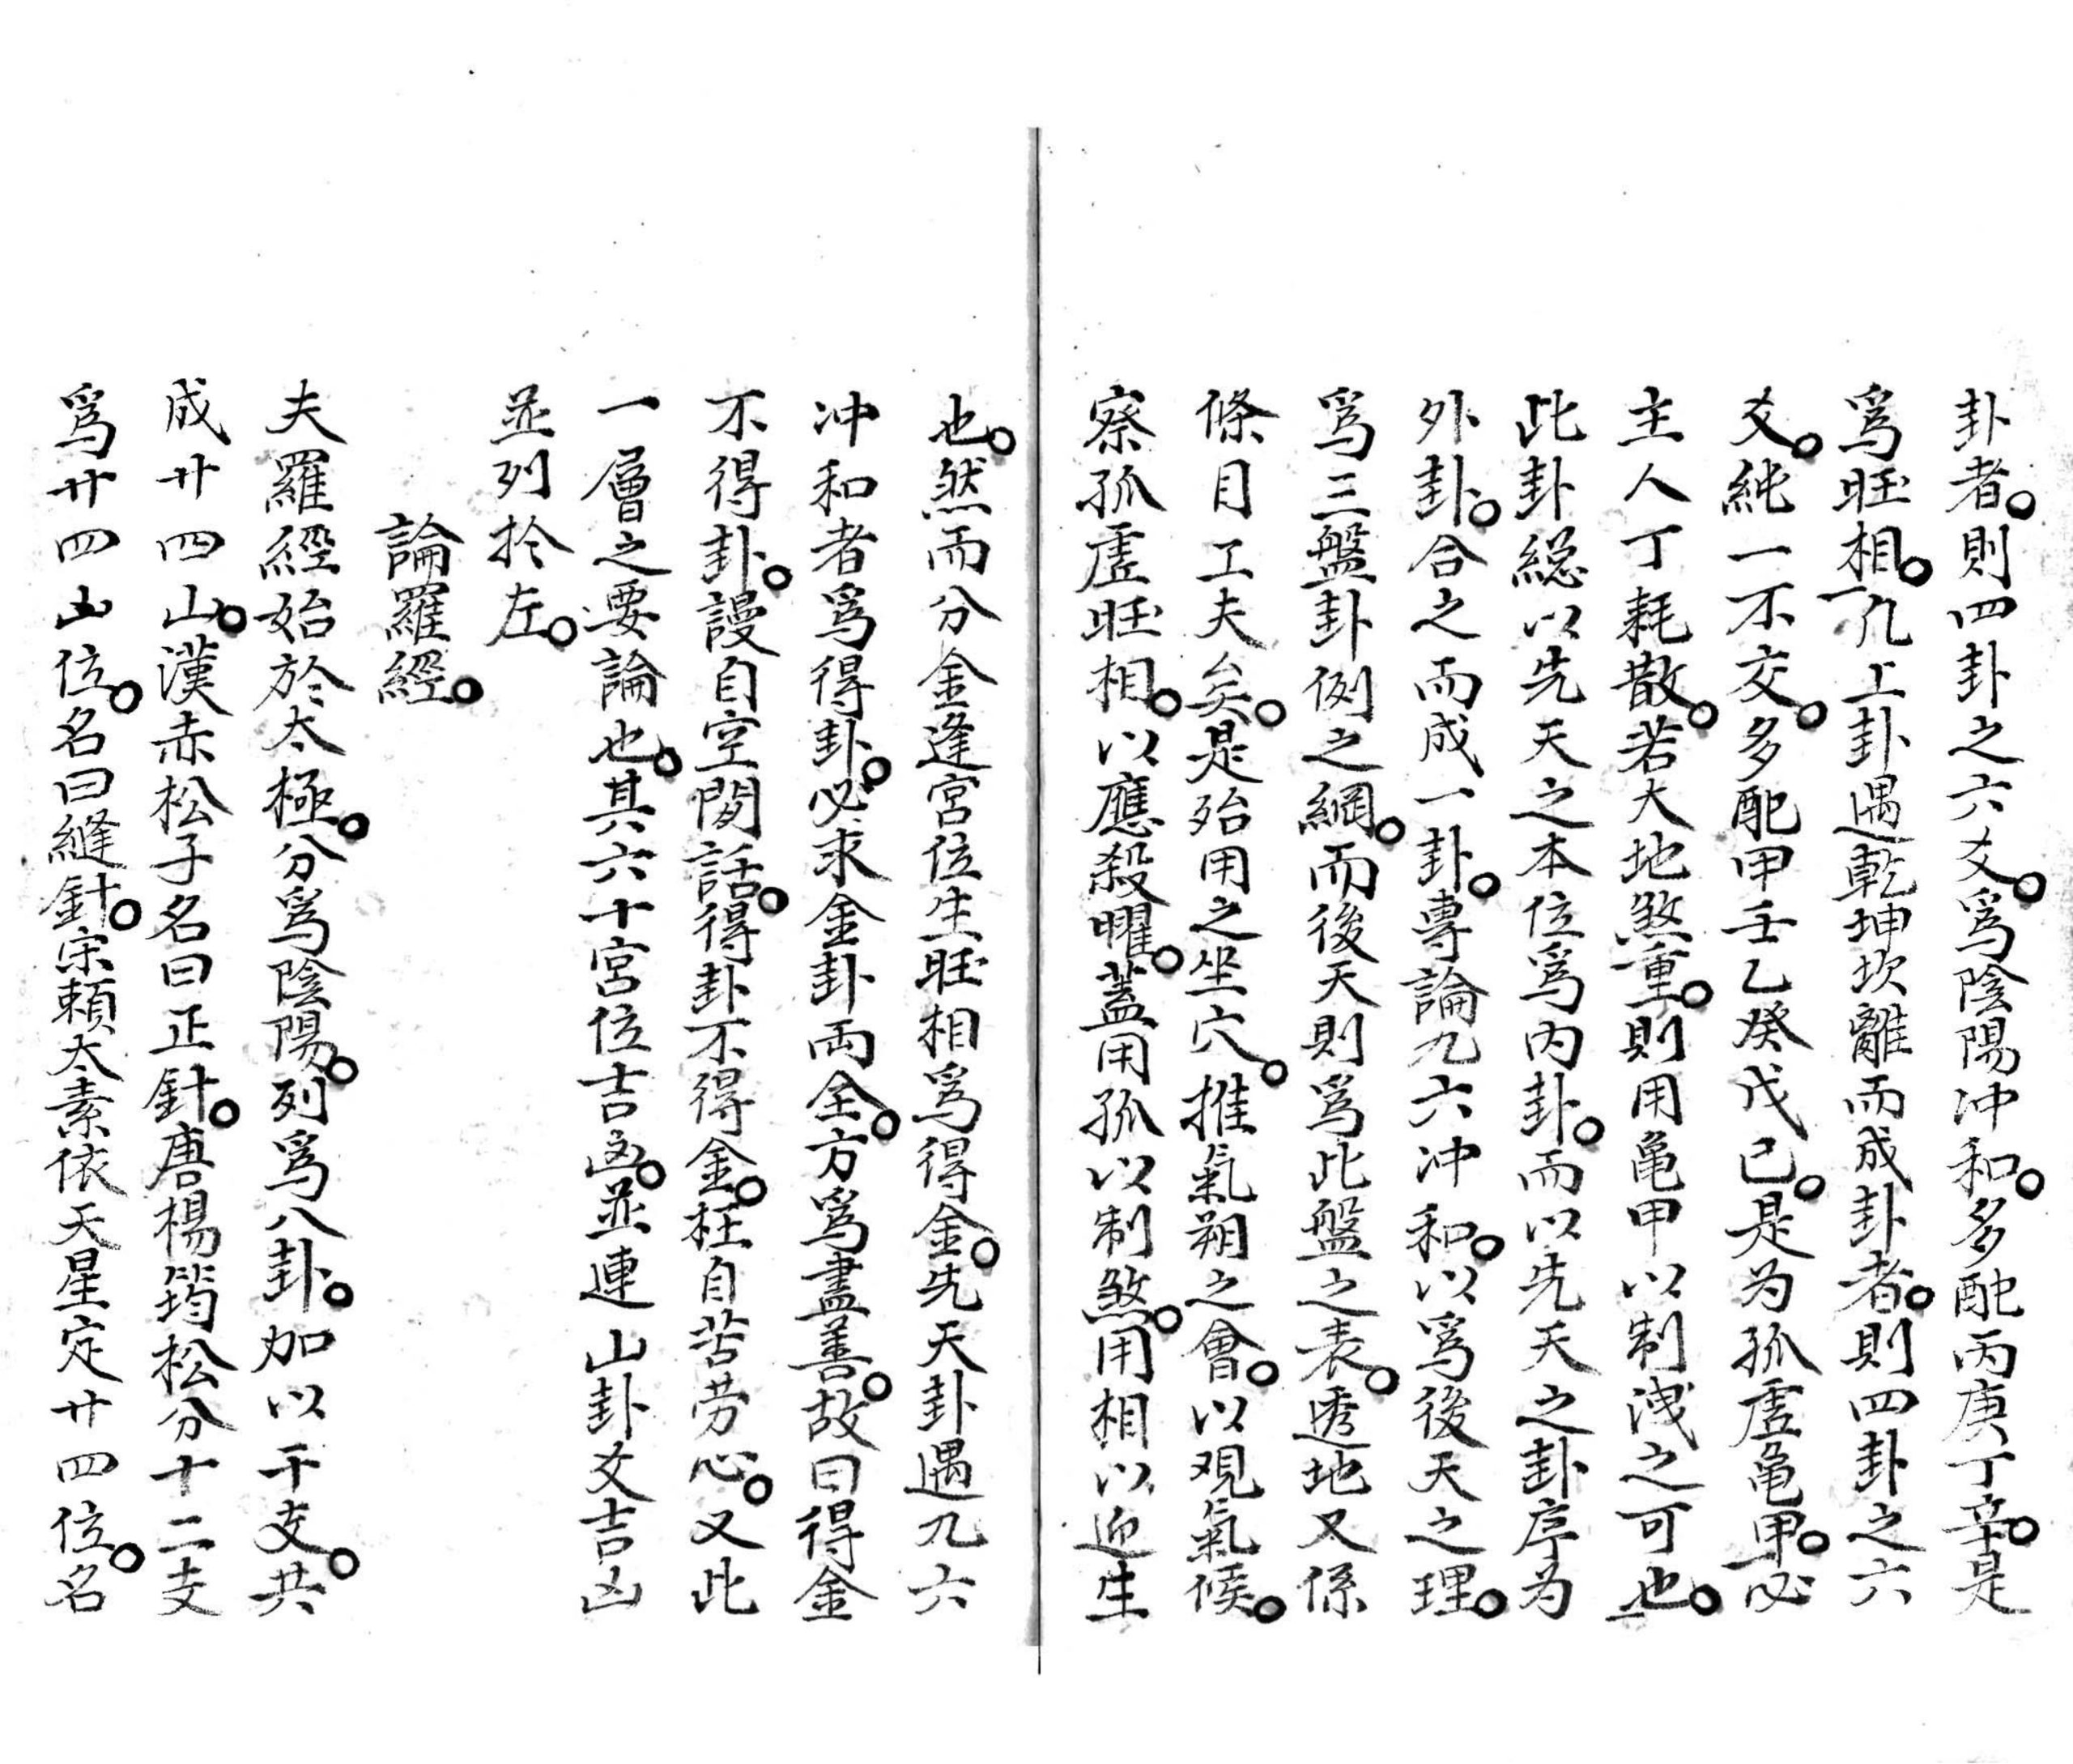 卦者。則四卦之六爻。爲陰陽冲和。多配丙庚丁辛。是
爲旺相。凡上卦遇乾坤坎離而成卦者。則四卦之六
爻。純一不交。多配甲壬乙癸戊己。是为孤虛亀甲。必
主人丁耗散。若大地煞重。則用亀甲以制洩之可也。
此卦総以先天之本位爲内卦。而以先天之卦序为
外卦。合之而成一卦。專論九六冲和。以爲後天之理。
爲三盤卦例之綱。而後天則爲此盤之表。透地又係
條目工夫矣。是殆用之坐穴。推氣朔之會。以观氣候。
察孤虛旺相。以應殺曜。蓋用孤以制煞。用相以迎生
也。然而分金逢宮位生旺相爲得金。先天卦遇九六
冲和者爲得卦。必求金卦兩全。方爲盡善。故曰得金
不得卦。謾自空閔話。得卦不得金。枉自苦劳心。又此
一層之要論也。其六十宮位吉凶。並連山卦爻吉凶
並列扵左。
論羅經。
夫羅經始於太極。分爲陰陽。列爲八卦。加以干支。共
成廿四山。漢赤松子名曰正針。唐楊筠松分十二支
爲廿四山位。名曰縫針。宗頼太素依天星定廿四位。名